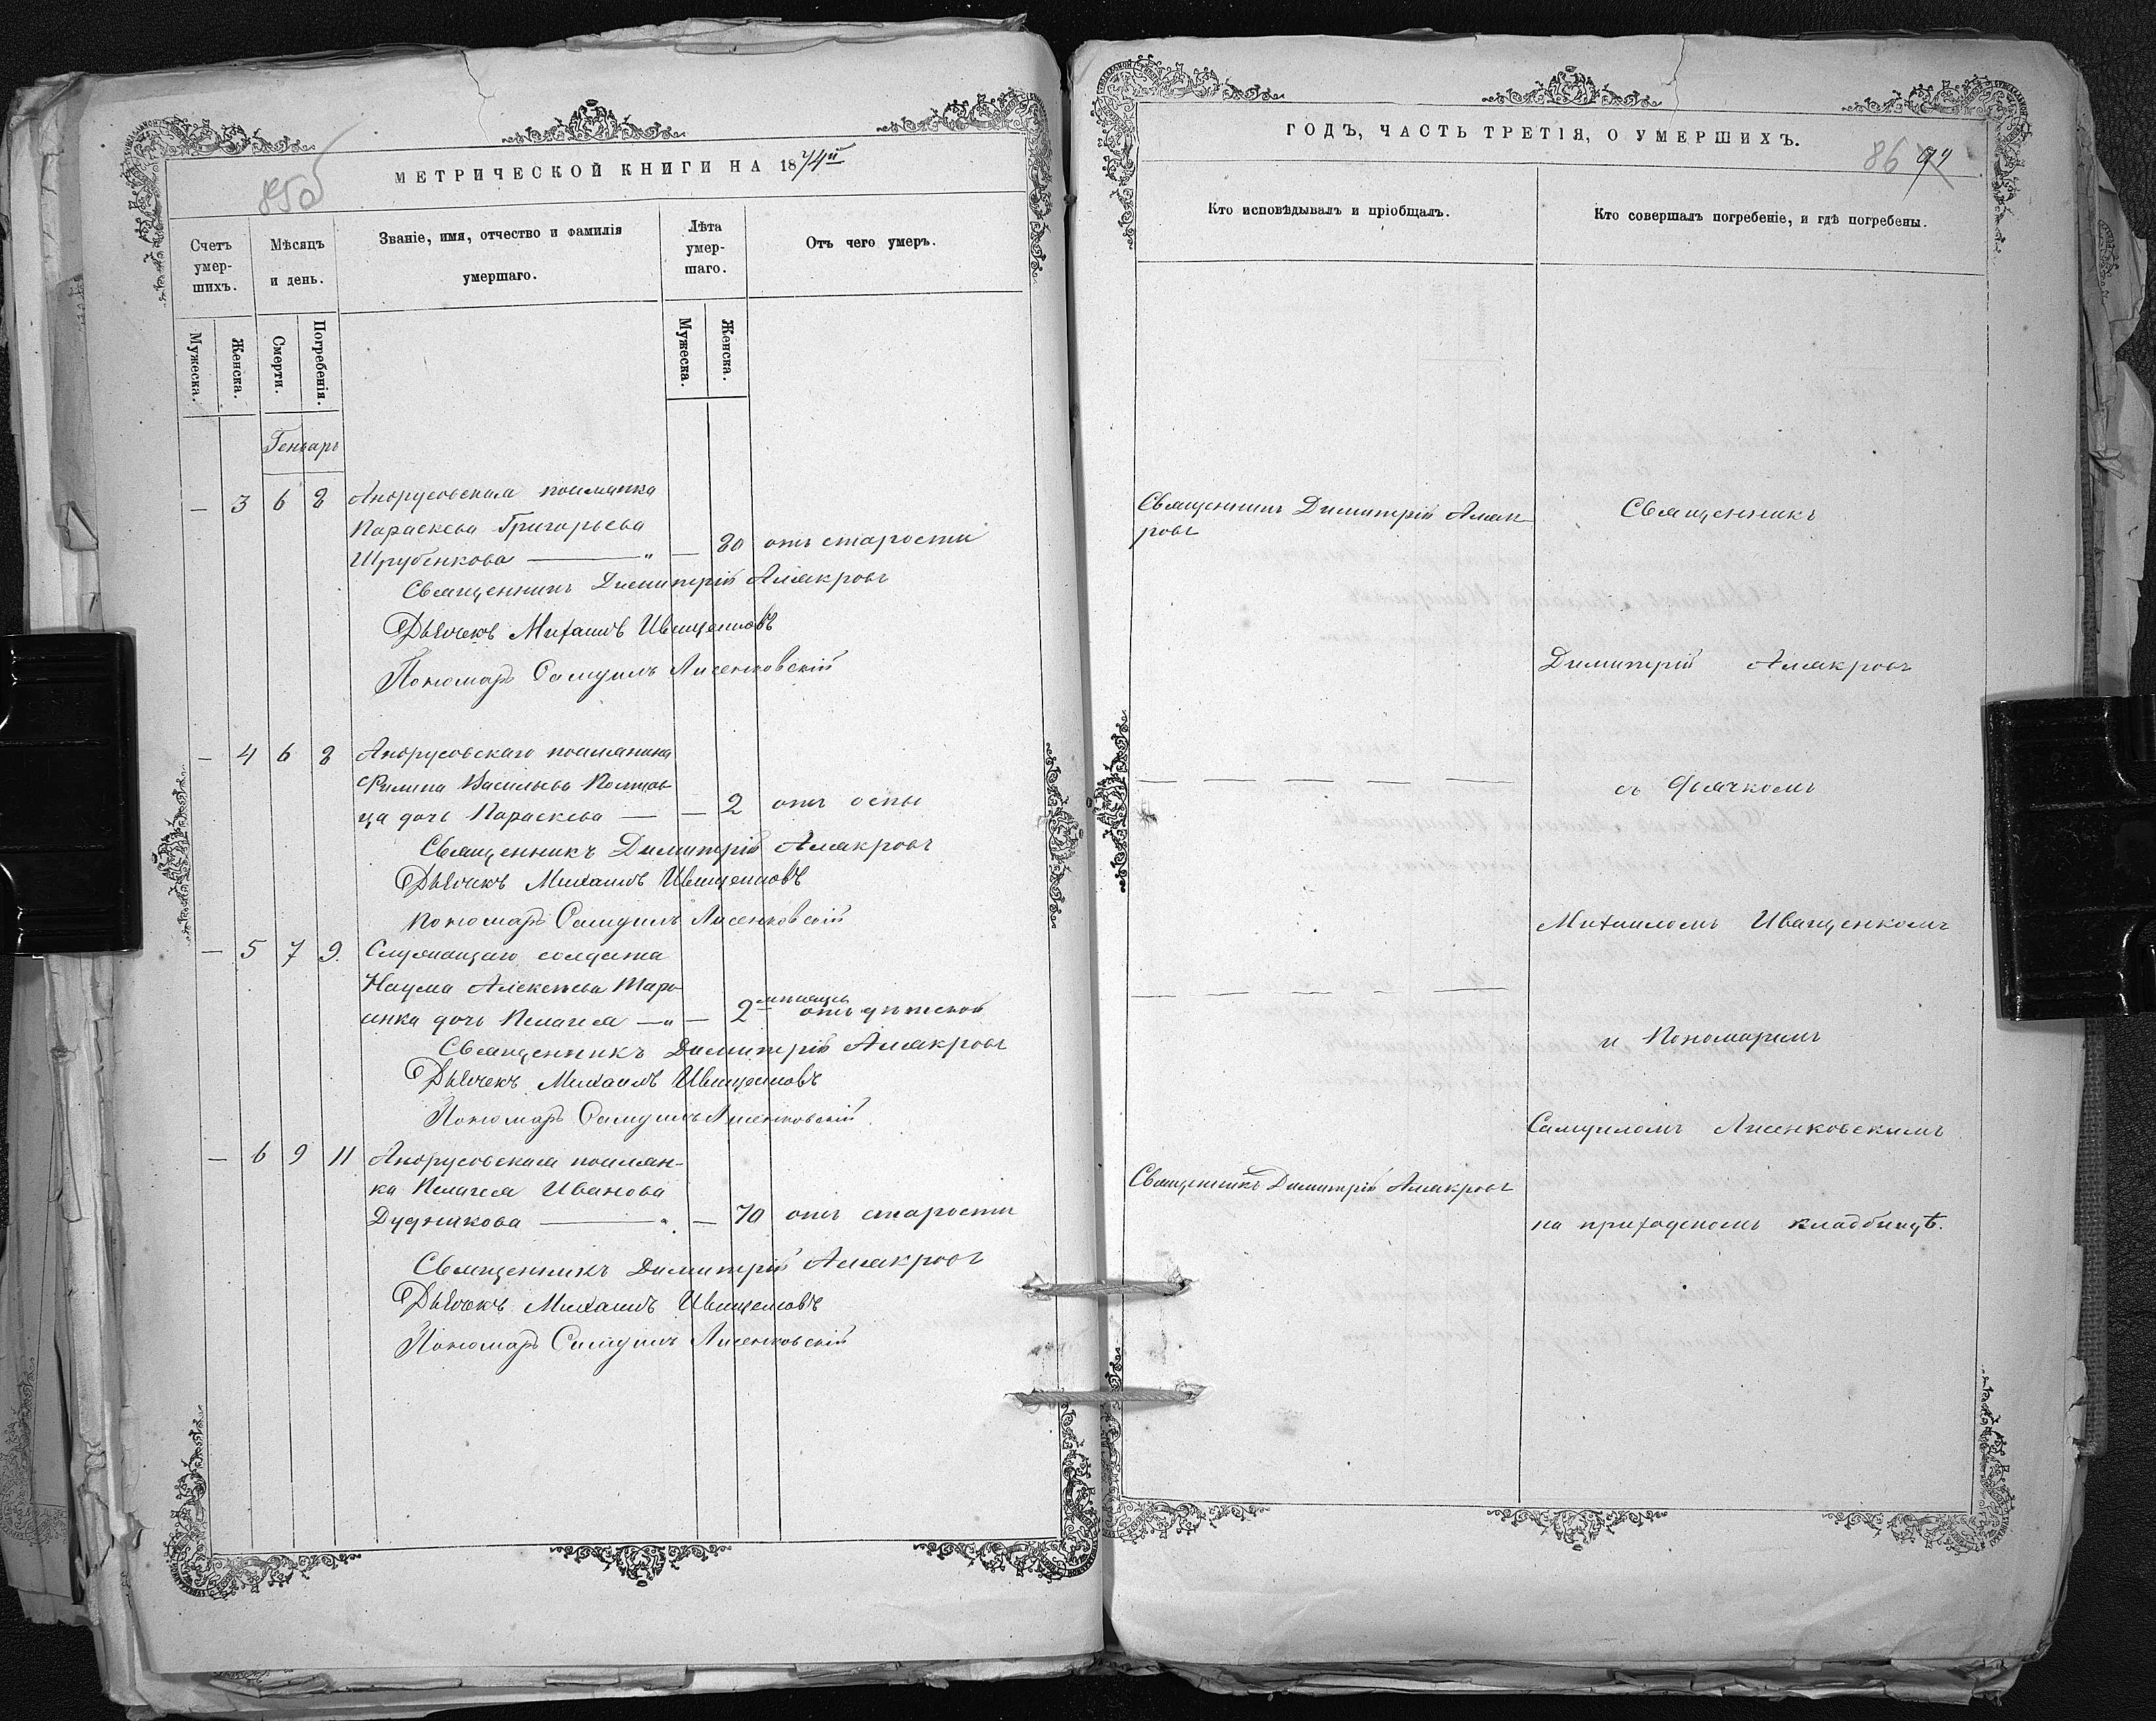 МЕТРИЧЕСКОЙ КНИГИ НА 1874й
85об
Счетъ умер-
шихъ.
Мѣсяцъ
и день.
Званіе, имя, отчество и фамилія
умершаго.
Лѣта
умер-
шаго.
Отъ чего умеръ.
Мужеска.
Женска.
Смерти.
Погребенія.
Мужеска.
Женска.
Геньварь
— 3 6 8 Андрусовская поселянка
Параскева Григорьева
Шрубенкова — " — 80 отъ старости
Священникъ Димитрій
Дьячекъ Михаилъ Иващенковъ
Пономарь Самуилъ Лисенковскій
— 4 6 8 Андрусовскаго поселянина
Филипа Васильева
ца дочь Параскева — — 2 отъ оспы
Священникъ Димитрій
Дьячекъ Михаилъ Иващенковъ
Пономарь Самуилъ Лисенковскій
— 5 7 9. Служащаго солдата
Наума Алексѣева Тара-
сенка дочь Пелагея — " — 2 мѣсяца отъ дѣтской
Священникъ Димитрій
Дьячекъ Михаилъ Иващенковъ
Пономарь Самуилъ Лисенковскій.
— 6 9 11 Андрусовская поселян-
ка Пелагея Иванова
Дудникова — " — 70 отъ старости
Священникъ Димитрій
Дьячекъ Михаилъ Иващенковъ
Пономарь Самуилъ Лисенковскій
ГОДЪ, ЧАСТЬ ТРЕТІЯ, О УМЕРШИХЪ.
86
Кто исповѣдывалъ и пріобщалъ.
Кто совершалъ погребеніе, и гдѣ погребены.
Священникъ Димитрій
Священникъ
Димитрій
съ Дьячкомъ
Михаиломъ Иващенкомъ
и Пономаремъ
Самуиломъ Лисенковскимъ
Священникъ Димитрій
на приходскомъ кладбищѣ.